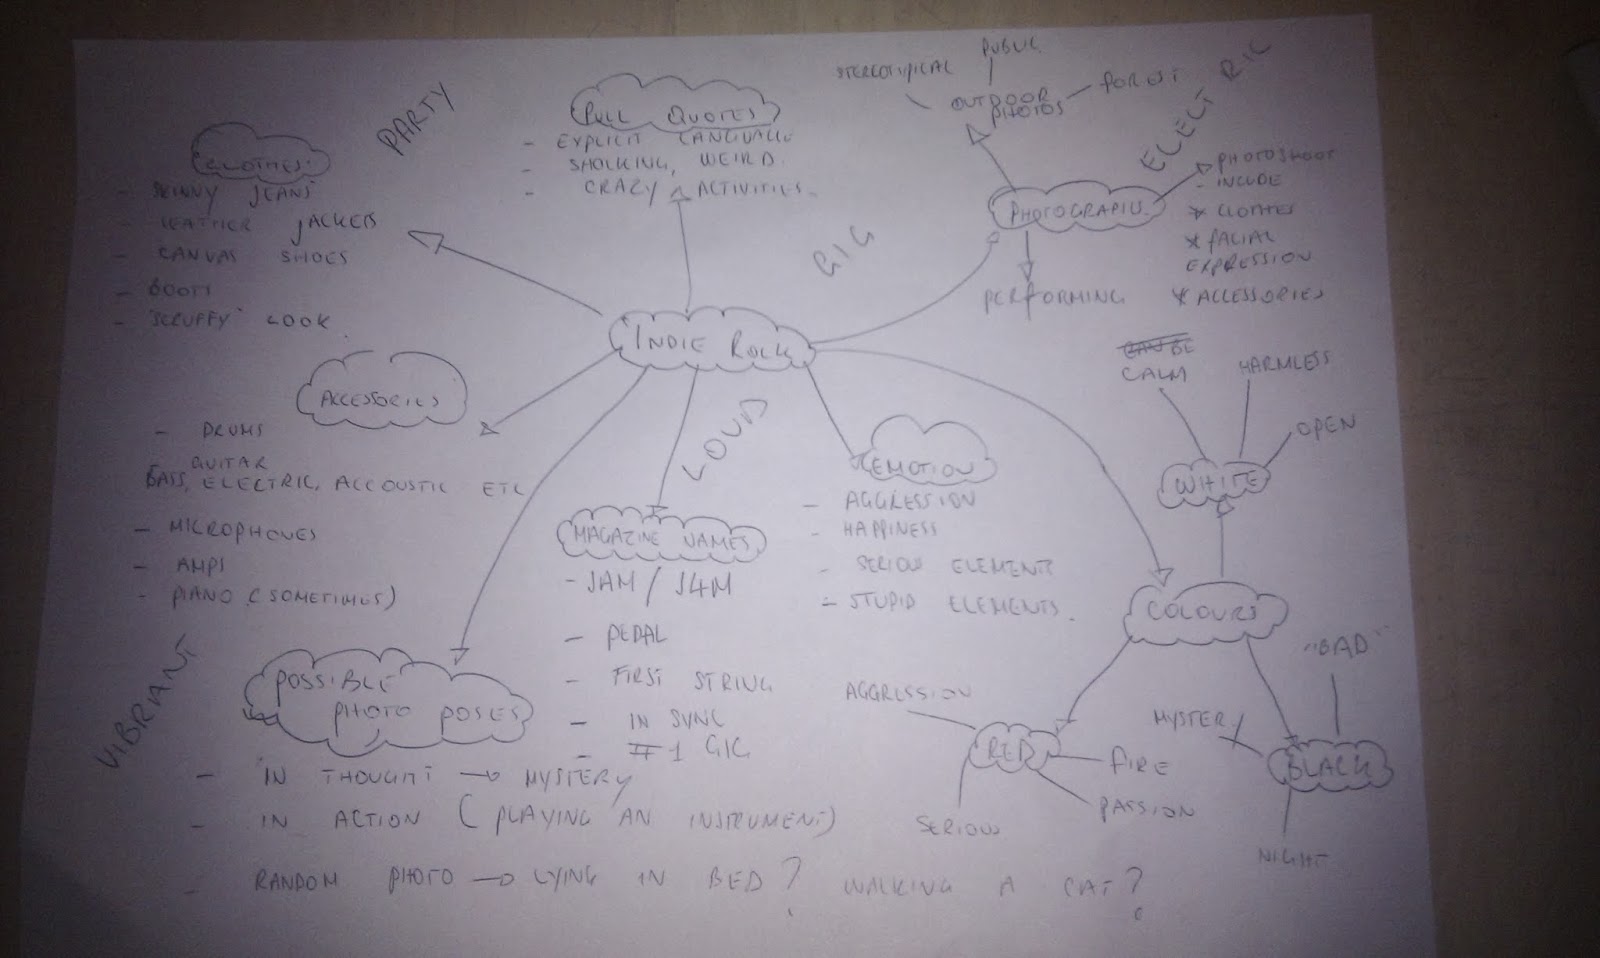 PARTY
CLOTHES
- SKINNY JEANS
- LEATHER JACKETS
- CANVAS SHOES
- BOOTS
- "SCRUFFY" LOOK
PULL QUOTES
- EXPLICIT LANGUAGE
- SHOCKING, WEIRD
- CRAZY ACTIVITIES
GIG
STEREOTYPICAL
PUBLIC
OUTDOOR
PHOTOS
FOREST
ELECTRIC
PHOTOGRAPHS
PHOTOSHOOT
- INCLUDE
* CLOTHES
* FACIAL
EXPRESSION
* ACCESSORIES
PERFORMING
INDIE ROCK
ACCESSORIES
- DRUMS
GUITAR
BASS, ELECTRIC, ACCOUSTIC ETC
- MICROPHONES
- AMPS
- PIANO (SOMETIMES)
LOUD
MAGAZINE NAMES
- JAM / J4M
- PEDAL
- FIRST STRING
- IN SYNC
- #1 GIG
EMOTION
- AGGRESSION
- HAPPINESS
- SERIOUS ELEMENTS
- STUPID ELEMENTS
CALM
HARMLESS
OPEN
WHITE
COLOURS
AGGRESSION
RED
FIRE
PASSION
SERIOUS
"BAD"
MYSTERY
BLACK
NIGHT
VIBRANT
POSSIBLE
PHOTO POSES
- IN THOUGHT → MYSTERY
- IN ACTION (PLAYING AN INSTRUMENT)
- RANDOM PHOTO → LYING IN BED? WALKING A CAT?